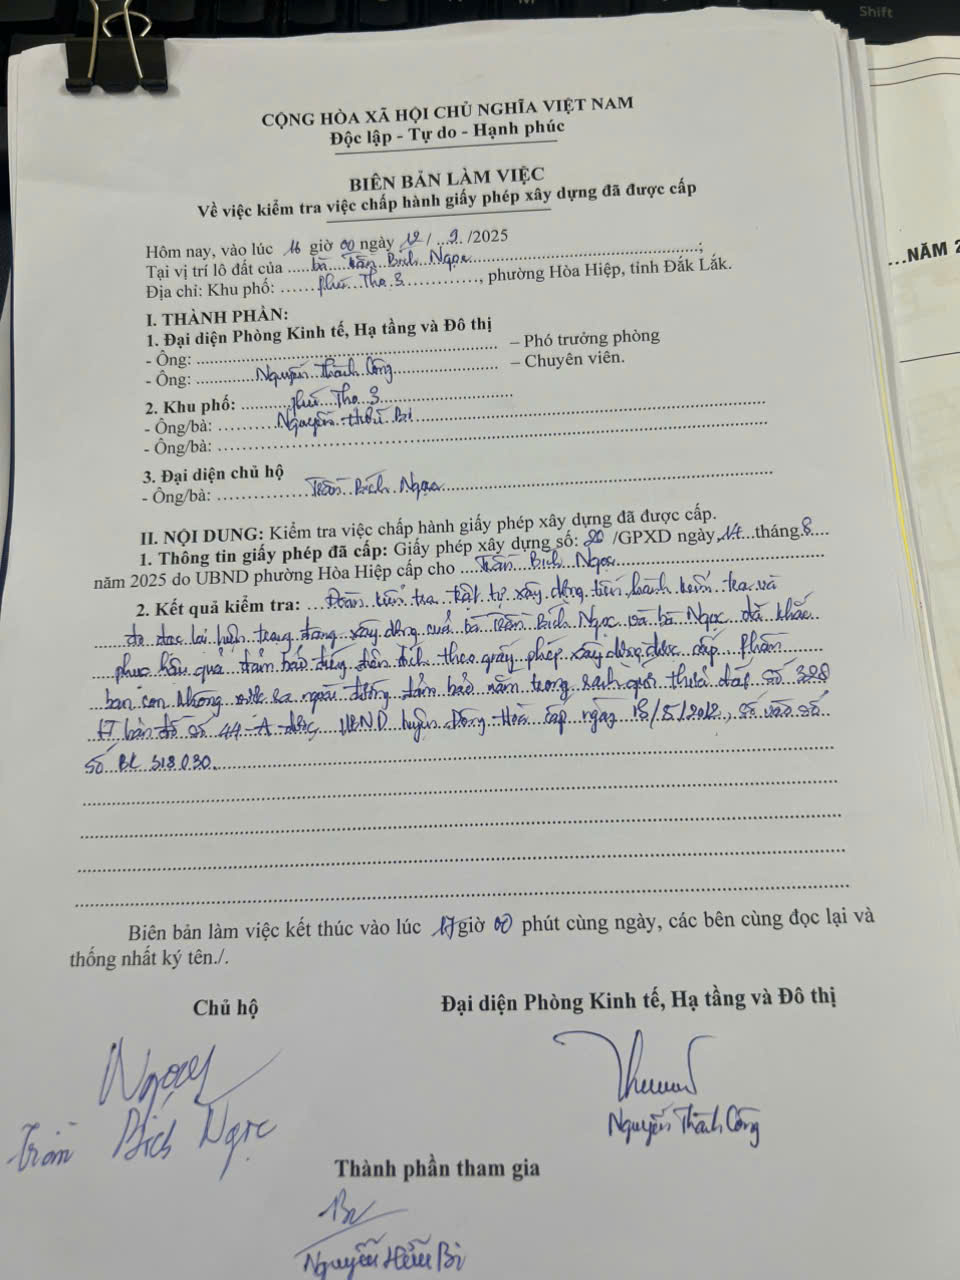 Shift
CỘNG HÒA XÃ HỘI CHỦ NGHĨA VIỆT NAM
Độc lập - Tự do - Hạnh phúc
BIÊN BẢN LÀM VIỆC
Về việc kiểm tra việc chấp hành giấy phép xây dựng đã được cấp
Hôm nay, vào lúc 16 giờ 00 ngày 12/ ...9. /2025
Tại vị trí lô đất của .....bà...Trần..Bích..Ngọc...;
Địa chỉ: Khu phố: ......Phú..Thọ 3............, phường Hòa Hiệp, tỉnh Đắk Lắk.
...NĂM 2
I. THÀNH PHẦN:
1. Đại diện Phòng Kinh tế, Hạ tầng và Đô thị
- Ông: ........................ – Phó trưởng phòng
- Ông: ............Nguyễn Thành Công............ – Chuyên viên.
2. Khu phố: .........Phú...Thọ 3............
- Ông/bà: .........Nguyễn Hữu Bi............
- Ông/bà: ........................
3. Đại diện chủ hộ
- Ông/bà: ...............Trần..Bích..Ngọc............
II. NỘI DUNG: Kiểm tra việc chấp hành giấy phép xây dựng đã được cấp.
1. Thông tin giấy phép đã cấp: Giấy phép xây dựng số: 20 /GPXD ngày 14 tháng 8
năm 2025 do UBND phường Hòa Hiệp cấp cho ...Trần Bích Ngọc............
2. Kết quả kiểm tra: ...Đoàn kiểm tra trật tự xây dựng tiến hành kiểm tra và
đo đạc lại hiện trạng đang xây dựng của bà Trần Bích Ngọc và bà Ngọc đã khắc
phục hậu quả đảm bảo đúng diện tích theo giấy phép xây dựng được cấp. Phần
ban con không vượt ra ngoài đường đảm bảo nằm trong ranh giới thửa đất số 328
tờ bản đồ số 44-A được UBND huyện Đông Hòa cấp ngày 18/5/2012, số vào sổ
số BL 518030
Biên bản làm việc kết thúc vào lúc 17 giờ 00 phút cùng ngày, các bên cùng đọc lại và
thống nhất ký tên./.
Chủ hộ
Đại diện Phòng Kinh tế, Hạ tầng và Đô thị
Ngọc
Trần Bích Ngọc
Nguyễn Thành Công
Thành phần tham gia
Bi
Nguyễn Hữu Bi